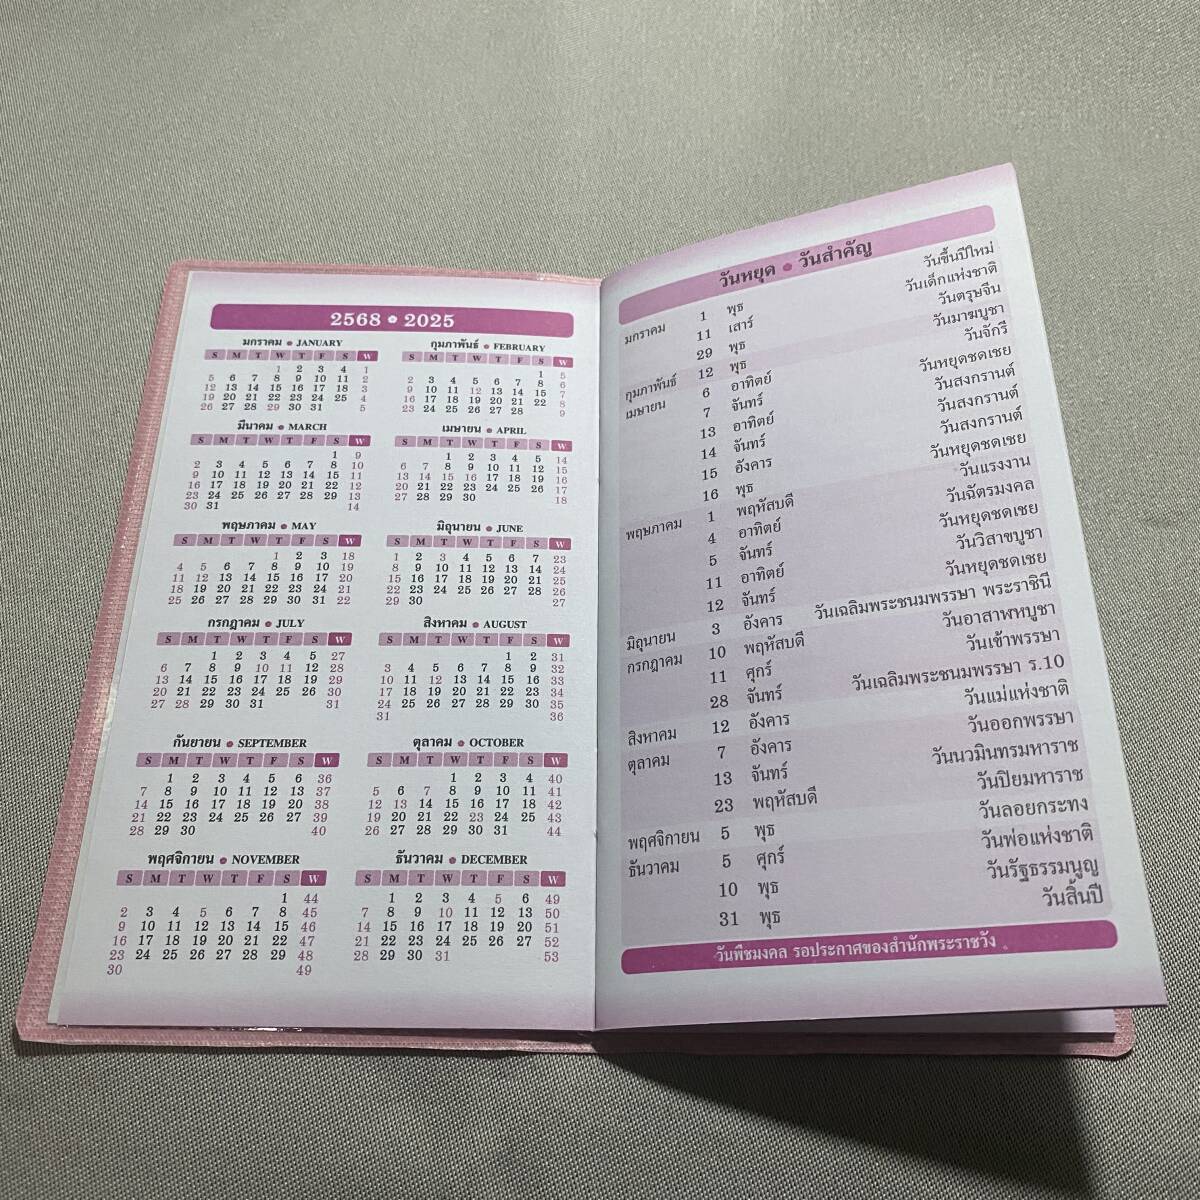 2568 2025
มกราคม • JANUARY
S M T W T F S W
1 2 3 4 1
5 6 7 8 9 10 11 2
12 13 14 15 16 17 18 3
19 20 21 22 23 24 25 4
26 27 28 29 30 31 5
กุมภาพันธ์ • FEBRUARY
S M T W T F S W
1 5
2 3 4 5 6 7 8 6
9 10 11 12 13 14 15 7
16 17 18 19 20 21 22 8
23 24 25 26 27 28 9
มีนาคม • MARCH
S M T W T F S W
1 9
2 3 4 5 6 7 8 10
9 10 11 12 13 14 15 11
16 17 18 19 20 21 22 12
23 24 25 26 27 28 29 13
30 31 14
เมษายน • APRIL
S M T W T F S W
1 2 3 4 5 14
6 7 8 9 10 11 12 15
13 14 15 16 17 18 19 16
20 21 22 23 24 25 26 17
27 28 29 30 18
พฤษภาคม • MAY
S M T W T F S W
1 2 3 18
4 5 6 7 8 9 10 19
11 12 13 14 15 16 17 20
18 19 20 21 22 23 24 21
25 26 27 28 29 30 31 22
มิถุนายน • JUNE
S M T W T F S W
1 2 3 4 5 6 7 23
8 9 10 11 12 13 14 24
15 16 17 18 19 20 21 25
22 23 24 25 26 27 28 26
29 30 27
กรกฎาคม • JULY
S M T W T F S W
1 2 3 4 5 27
6 7 8 9 10 11 12 28
13 14 15 16 17 18 19 29
20 21 22 23 24 25 26 30
27 28 29 30 31 31
สิงหาคม • AUGUST
S M T W T F S W
1 2 31
3 4 5 6 7 8 9 32
10 11 12 13 14 15 16 33
17 18 19 20 21 22 23 34
24 25 26 27 28 29 30 35
31 36
กันยายน • SEPTEMBER
S M T W T F S W
1 2 3 4 5 6 36
7 8 9 10 11 12 13 37
14 15 16 17 18 19 20 38
21 22 23 24 25 26 27 39
28 29 30 40
ตุลาคม • OCTOBER
S M T W T F S W
1 2 3 4 40
5 6 7 8 9 10 11 41
12 13 14 15 16 17 18 42
19 20 21 22 23 24 25 43
26 27 28 29 30 31 44
พฤศจิกายน • NOVEMBER
S M T W T F S W
1 44
2 3 4 5 6 7 8 45
9 10 11 12 13 14 15 46
16 17 18 19 20 21 22 47
23 24 25 26 27 28 29 48
30 49
ธันวาคม • DECEMBER
S M T W T F S W
1 2 3 4 5 6 49
7 8 9 10 11 12 13 50
14 15 16 17 18 19 20 51
21 22 23 24 25 26 27 52
28 29 30 31 53
วันหยุด • วันสำคัญ
มกราคม 1 พุธ วันขึ้นปีใหม่
11 เสาร์ วันเด็กแห่งชาติ
29 พุธ วันตรุษจีน
กุมภาพันธ์ 12 พุธ วันมาฆบูชา
เมษายน 6 อาทิตย์ วันจักรี
7 จันทร์ วันหยุดชดเชย
13 อาทิตย์ วันสงกรานต์
14 จันทร์ วันสงกรานต์
15 อังคาร วันสงกรานต์
16 พุธ วันหยุดชดเชย
พฤษภาคม 1 พฤหัสบดี วันแรงงาน
4 อาทิตย์ วันฉัตรมงคล
5 จันทร์ วันหยุดชดเชย
11 อาทิตย์ วันวิสาขบูชา
12 จันทร์ วันหยุดชดเชย
มิถุนายน 3 อังคาร วันเฉลิมพระชนมพรรษา พระราชินี
กรกฎาคม 10 พฤหัสบดี วันอาสาฬหบูชา
11 ศุกร์ วันเข้าพรรษา
28 จันทร์ วันเฉลิมพระชนมพรรษา ร.10
สิงหาคม 12 อังคาร วันแม่แห่งชาติ
ตุลาคม 7 อังคาร วันออกพรรษา
13 จันทร์ วันนวมินทรมหาราช
23 พฤหัสบดี วันปิยมหาราช
พฤศจิกายน 5 พุธ วันลอยกระทง
ธันวาคม 5 ศุกร์ วันพ่อแห่งชาติ
10 พุธ วันรัฐธรรมนูญ
31 พุธ วันสิ้นปี
วันพืชมงคล รอประกาศของสำนักพระราชวัง